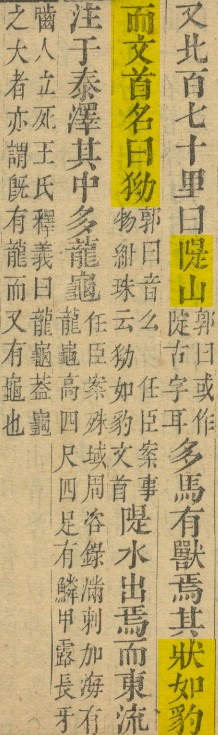 又北百七十里曰隄山
郭曰或作
古字耳
多馬有獸焉其狀如豹
而文首名曰狕
郭曰音么任臣案事
物紺珠云狕如豹文首
隄水出焉而東流
注于泰澤其中多龍龜
任臣案殊域周咨錄滿剌加海有
龍龜高四尺四足有鱗甲露長牙
齧人立死王氏釋義曰龍龜葢龜
之大者亦謂旣有龍而又有龜也